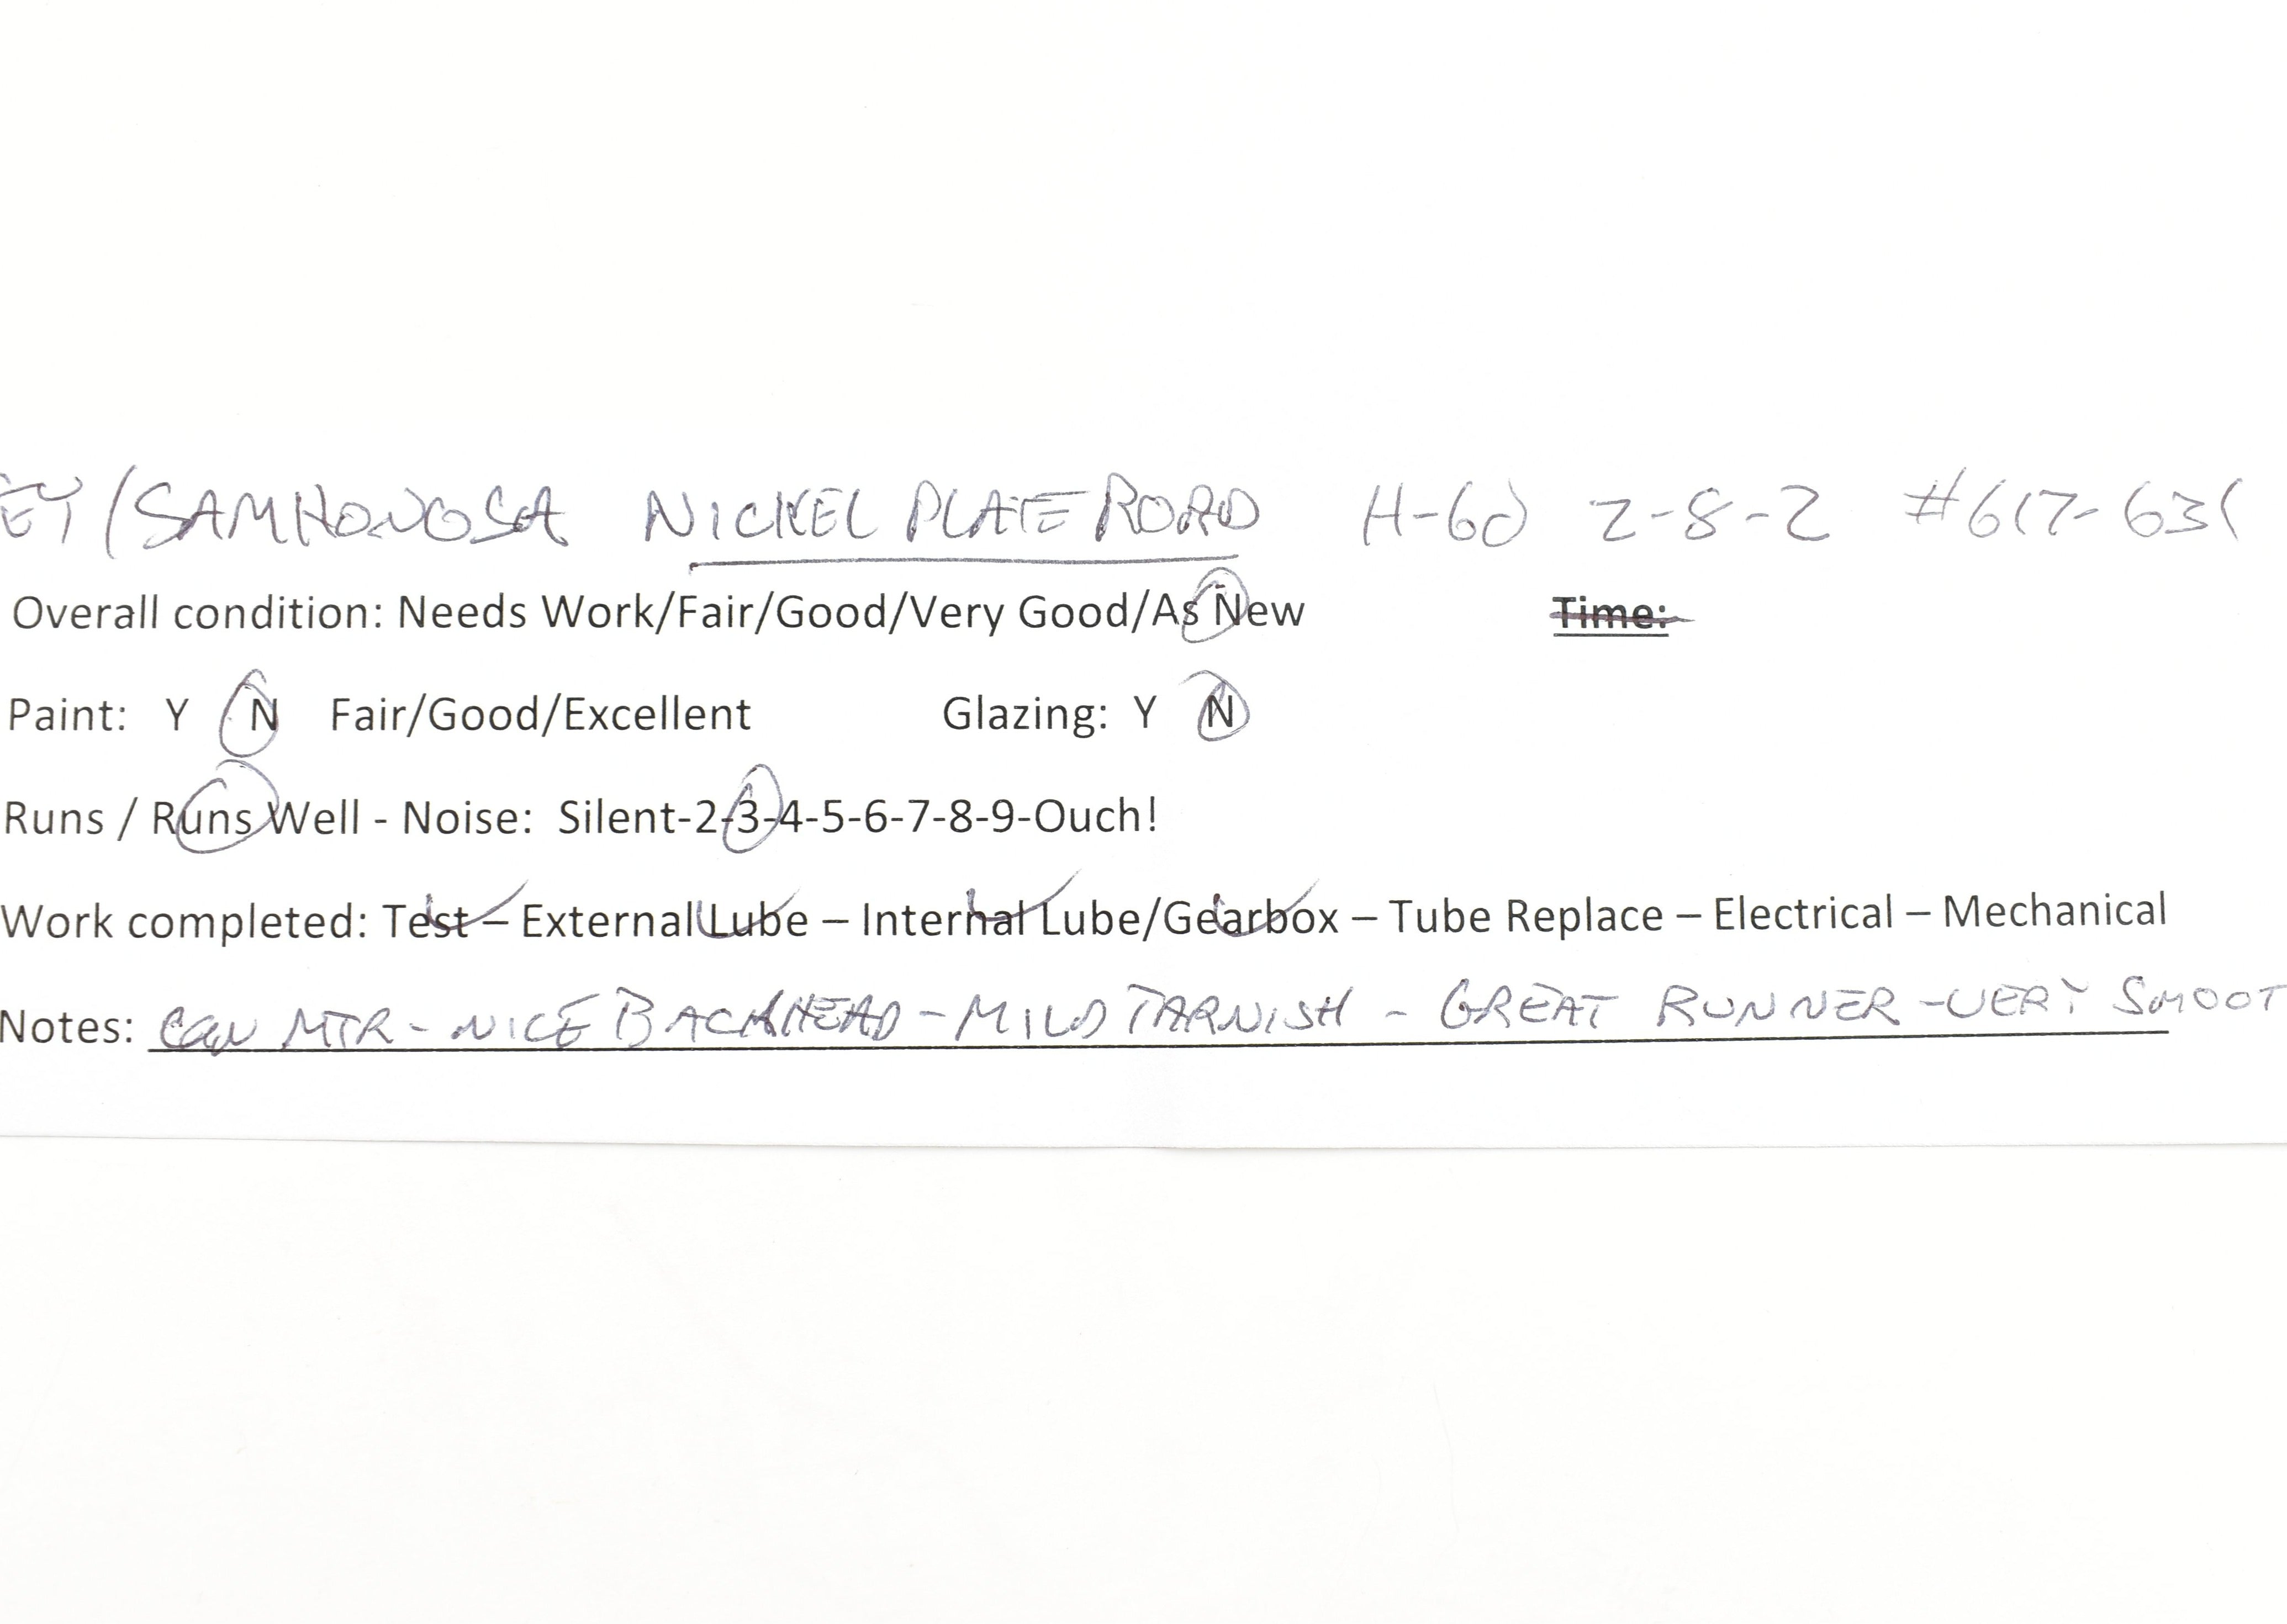 EY/SAMHONGSA NICKEL PLATE ROAD H-6d 2-8-2 #617-631
Overall condition: Needs Work/Fair/Good/Very Good/As New Time:
Paint: Y N Fair/Good/Excellent Glazing: Y N
Runs / Runs Well - Noise: Silent-2-3-4-5-6-7-8-9-Ouch!
Work completed: Test – External Lube – Internal Lube/Gearbox – Tube Replace – Electrical – Mechanical
Notes: CAN MTR - NICE BACKHEAD - MILD TARNISH - GREAT RUNNER - VERY SMOOT